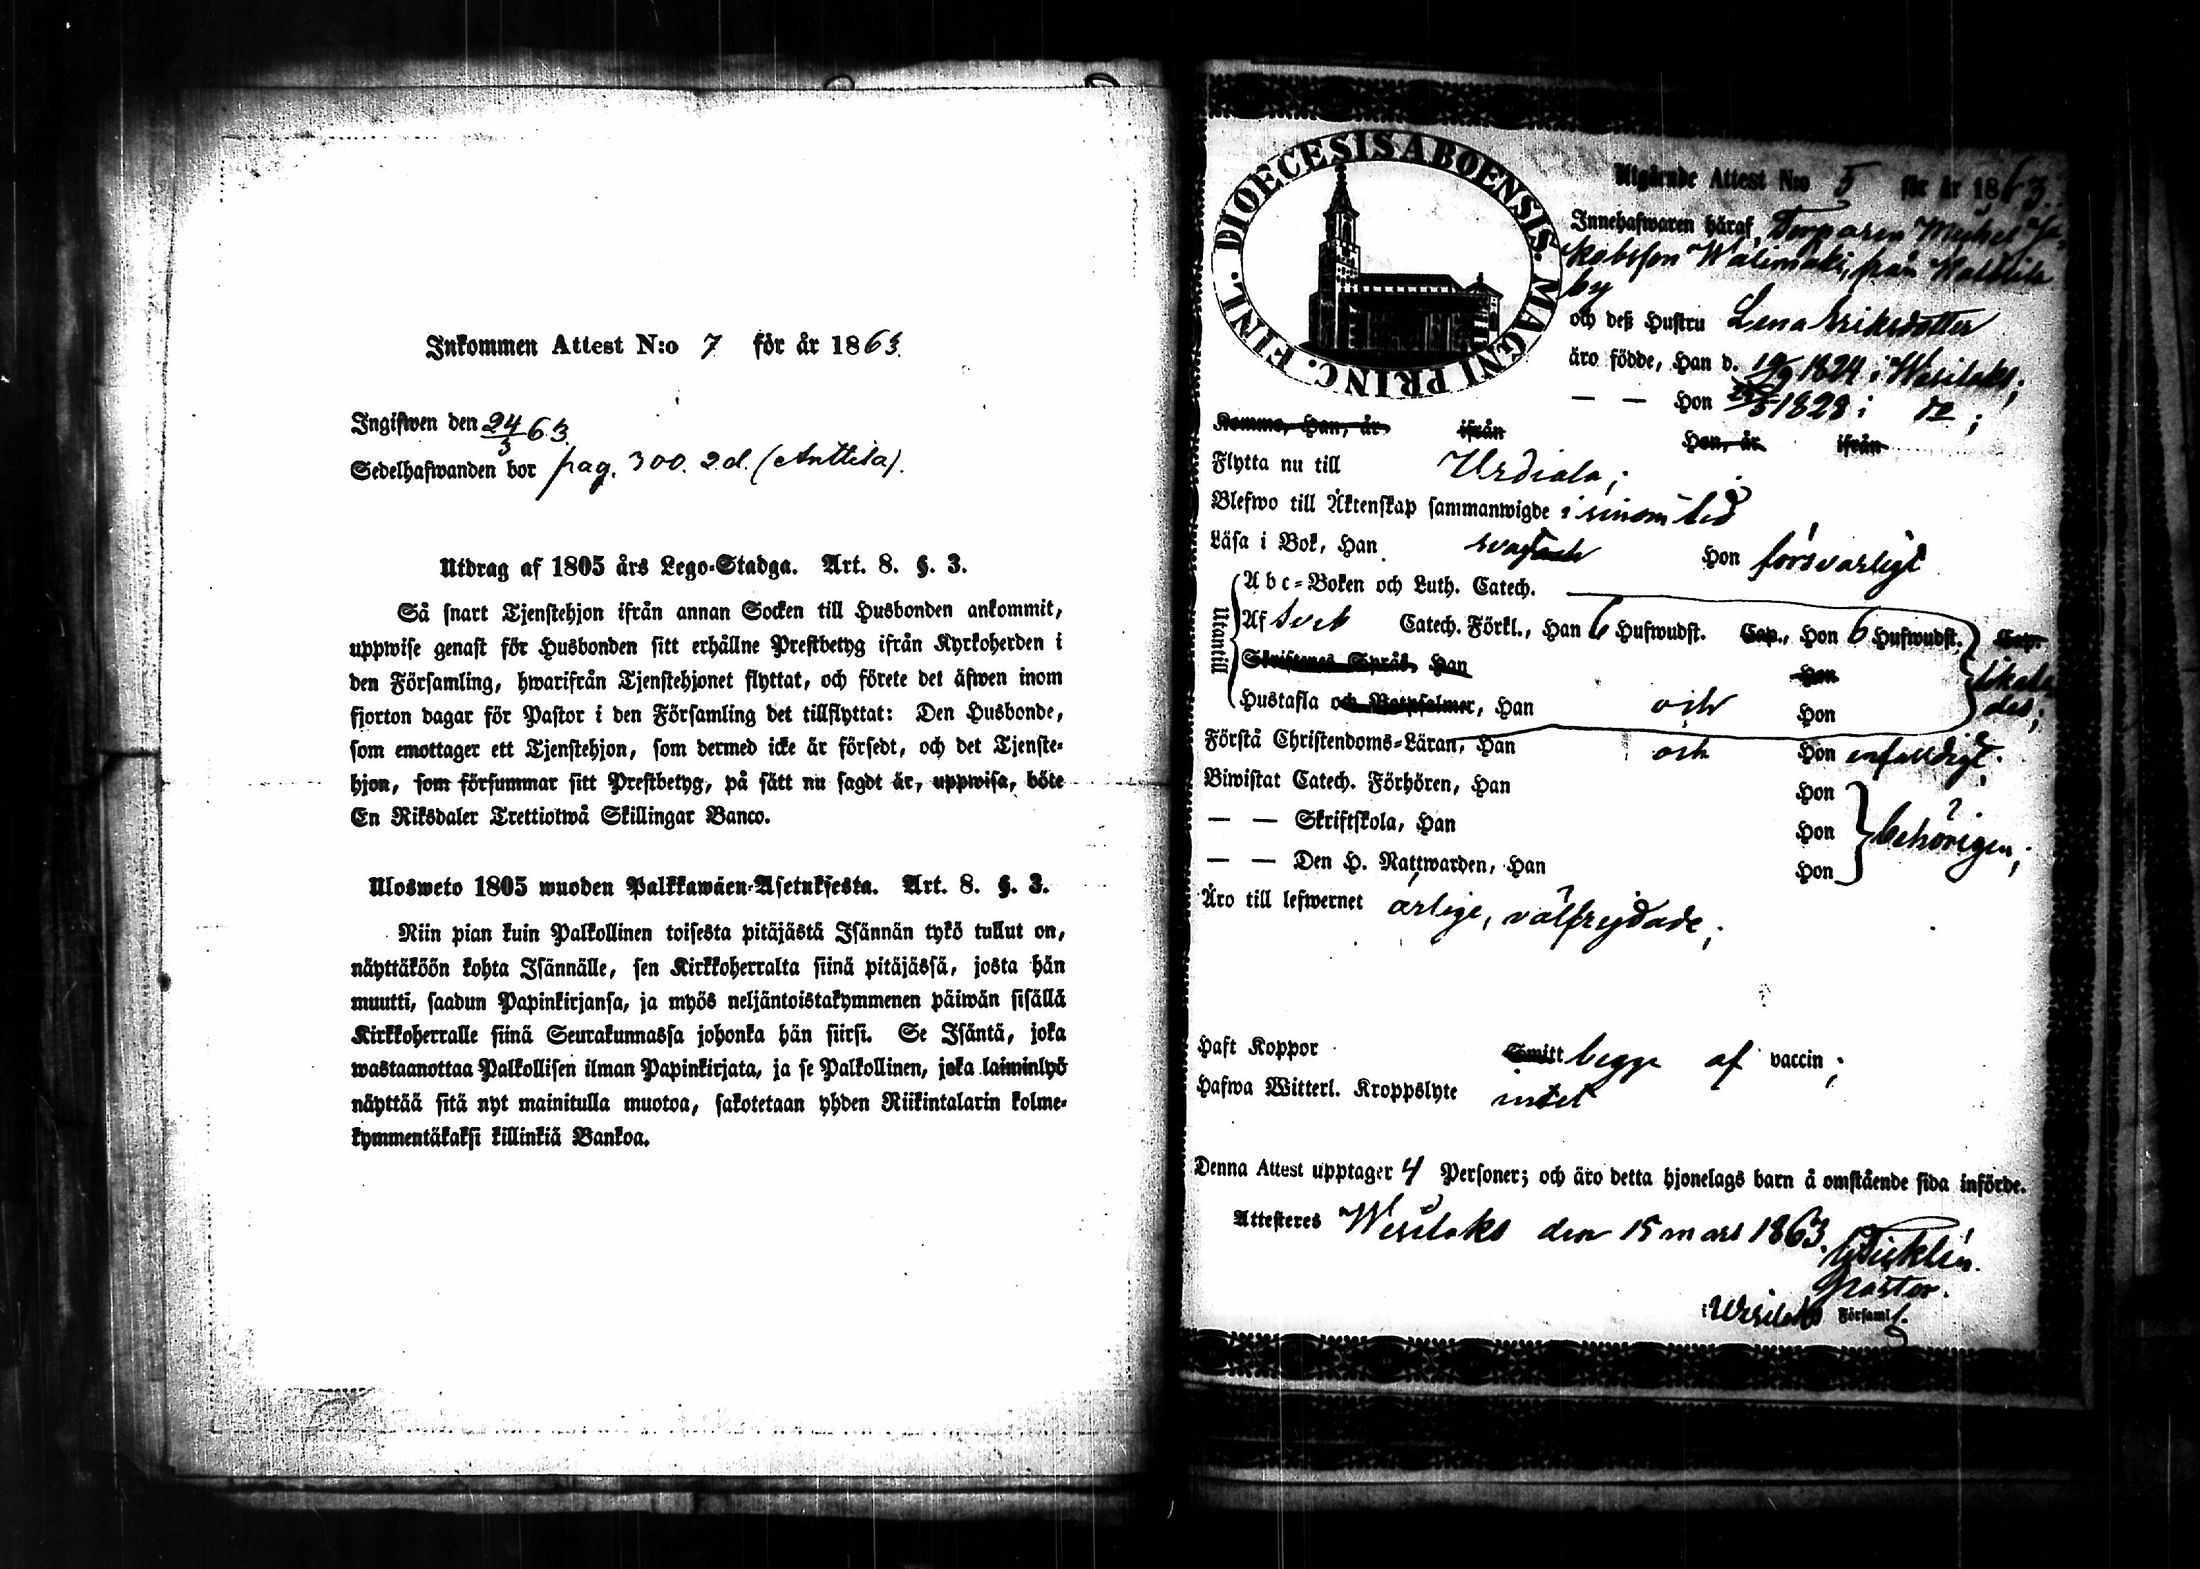 Inkommen Attest N:o 7 för år 1863.
Ingifwen den 24/3 63.
Sedelhafwanden bor pag. 300. 2.d. (Anttila).
Utdrag af 1805 års Lego-Stadga. Art. 8. §. 3.
Så snart Tjenstehjon ifrån annan Socken till Husbonden ankommit,
uppwise genast för Husbonden sitt erhållne Prestbetyg ifrån Kyrkoherden i
den Församling, hwarifrån Tjenstehjonet flyttat, och förete det äfwen inom
fjorton dagar för Pastor i den Församling det tillflyttat: Den Husbonde,
som emottager ett Tjenstehjon, som dermed icke är försedt, och det Tjenste-
hjon, som försummar sitt Prestbetyg, på sätt nu sagdt är, uppwisa, böte
En Riksdaler Trettiotwå Skillingar Banco.
Ulosweto 1805 wuoden Palkkawäen-Asetuksesta. Art. 8. §. 3.
Niin pian kuin Palkollinen toisesta pitäjästä Isännän tykö tullut on,
näyttäköön kohta Isännälle, sen Kirkkoherralta siinä pitäjässä, josta hän
muutti, saadun Papinkirjansa, ja myös neljäntoistakymmenen päiwän sisällä
Kirkkoherralle siinä Seurakunnassa johonka hän siirsi. Se Isäntä, joka
wastaanottaa Palkollisen ilman Papinkirjata, ja se Palkollinen, joka laiminlyö
näyttää sitä nyt mainitulla muotoa, sakotetaan yhden Riikintalarin kolme-
kymmentäkaksi killinkiä Bankoa.
DIOECESIS ABOENSIS. MAGNI PRINC. FINL.
Utgående Attest N:o 5 för år 1863.
Innehafwaren häraf, Torparen Michel Ja-
kobsson Wälimäki, från
by
och deß Hustru Lena Eriksdotter
äro födde, Han d. 19/9 1824 i Wesilaks;
— — Hon 1828 i do;
Komme, Han, år ifrån Hon, år ifrån
Flytta nu till Urdiala;
Blefwo till Äktenskap sammanwigde i sinom tid
Läsa i Bok, Han svagt Hon försvarligt
Utantill
Abc-Boken och Luth. Catech.
Af Sveb Catech. Förkl., Han 6 Hufwudst. Cap., Hon 6 Hufwudst. Cap.
Skriftenes Språk, Han Hon likale-
Hustafla och Botpsalmer, Han och Hon des;
Förstå Christendoms-Läran, Han och Hon enfaldigt;
Biwistat Catech. Förhören, Han Hon
— — Skriftskola, Han Hon behörigen;
— — Den H. Nattwarden, Han Hon
Äro till lefwernet ärlige, välfrejdade;
Haft Koppor Smitt begge af vaccin;
Hafwa Witterl. Kroppslyte intet
Denna Attest upptager 4 Personer; och äro detta hjonelags barn å omstående sida införde.
Attesteres Wesilaks den 15 mars 1863.
Pastor.
i Wesilaks Församl.